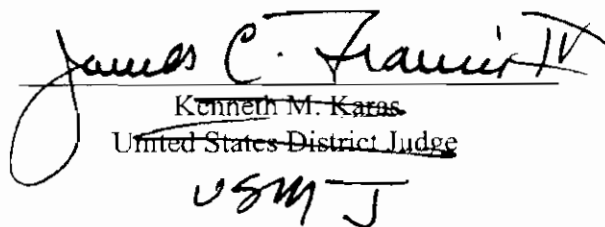 James C. Francis IV
Kenneth M. Karas
United States District Judge
USMJ